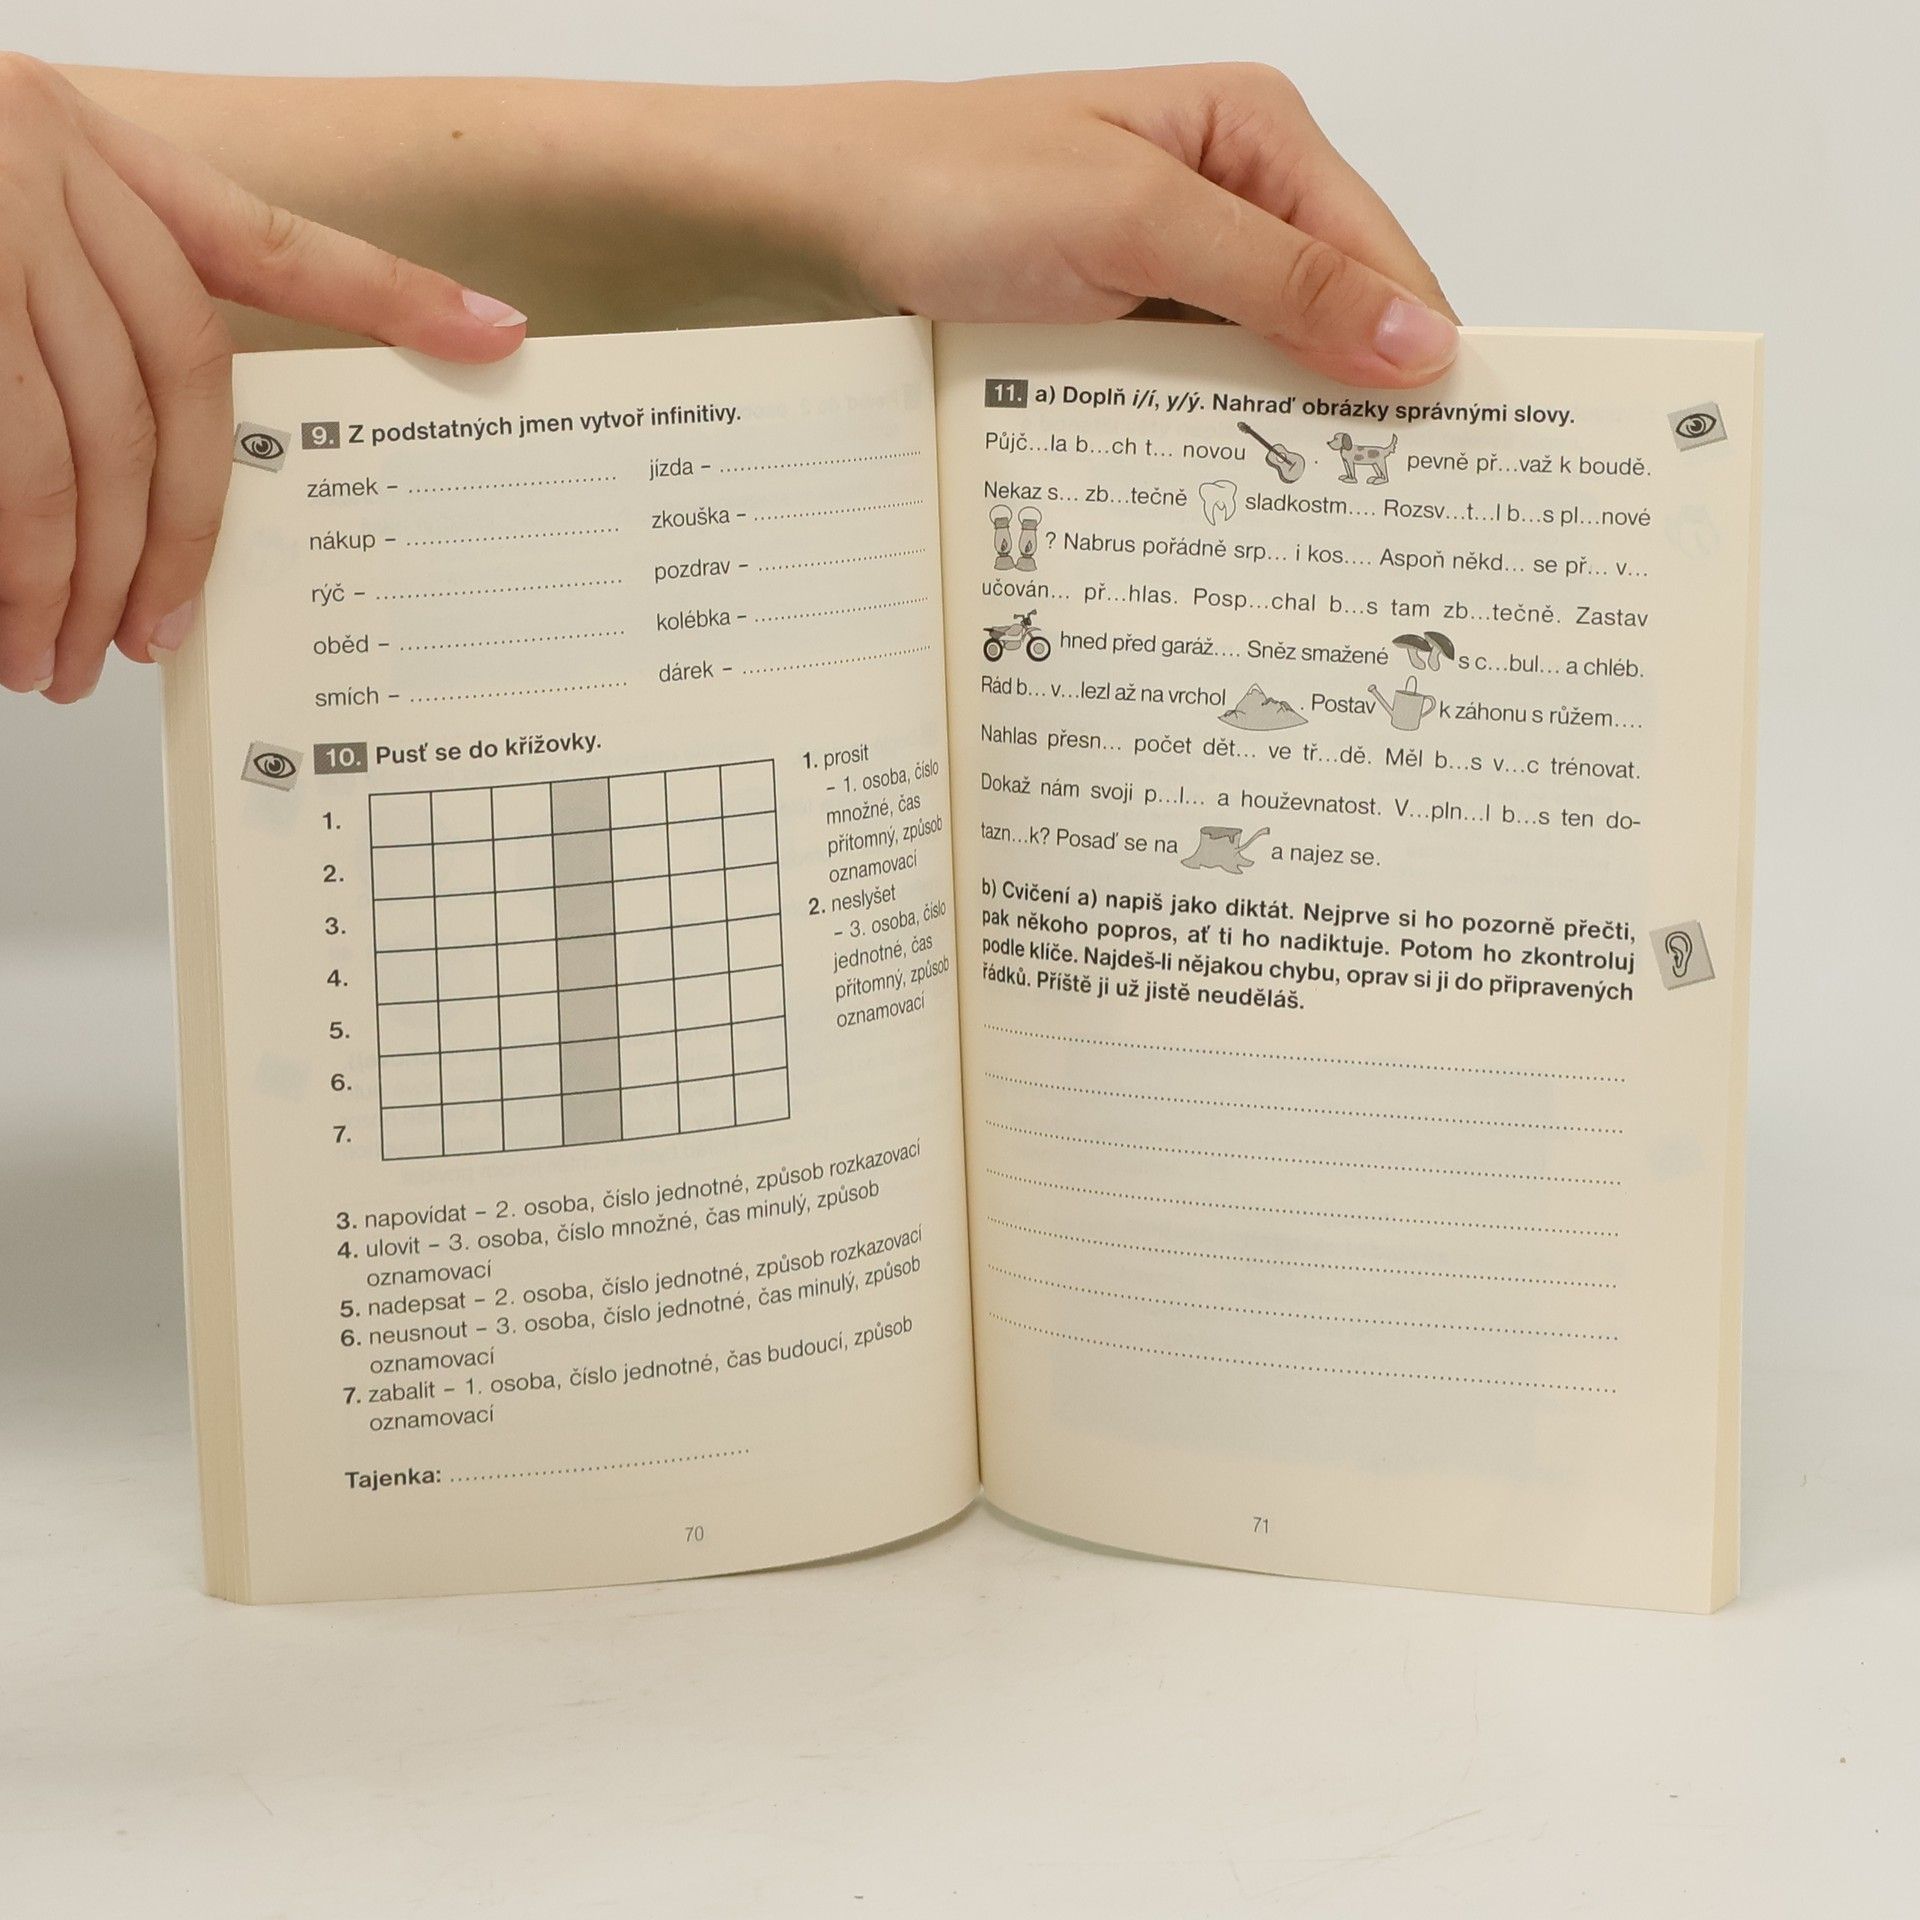 9. Z podstatných jmen vytvoř infinitivy.
zámek – ..............................
nákup – ..............................
rýč – ..............................
oběd – ..............................
smích – ..............................
jízda – ..............................
zkouška – ..............................
pozdrav – ..............................
kolébka – ..............................
dárek – ..............................
10. Pusť se do křížovky.
1.
2.
3.
4.
5.
6.
7.
1. prosit
– 1. osoba, číslo
množné, čas
přítomný, způsob
oznamovací
2. neslyšet
– 3. osoba, číslo
jednotné, čas
přítomný, způsob
oznamovací
3. napovídat – 2. osoba, číslo jednotné, způsob rozkazovací
4. ulovit – 3. osoba, číslo množné, čas minulý, způsob
oznamovací
5. nadepsat – 2. osoba, číslo jednotné, způsob rozkazovací
6. neusnout – 3. osoba, číslo jednotné, čas minulý, způsob
oznamovací
7. zabalit – 1. osoba, číslo jednotné, čas budoucí, způsob
oznamovací
Tajenka: ..............................
70
11. a) Doplň i/í, y/ý. Nahraď obrázky správnými slovy.
Půjč...la b...ch t... novou . pevně př...važ k boudě.
Nekaz s... zb...tečně sladkostm.... Rozsv...t...l b...s pl...nové
? Nabrus pořádně srp... i kos.... Aspoň někd... se př... v...
učován... př...hlas. Posp...chal b...s tam zb...tečně. Zastav
hned před garáž.... Sněz smažené s c...bul... a chléb.
Rád b... v...lezl až na vrchol . Postav k záhonu s růžem....
Nahlas přesn... počet dět... ve tř...dě. Měl b...s v...c trénovat.
Dokaž nám svoji p...l... a houževnatost. V...pln...l b...s ten do-
tazn...k? Posaď se na a najez se.
b) Cvičení a) napiš jako diktát. Nejprve si ho pozorně přečti,
pak někoho popros, ať ti ho nadiktuje. Potom ho zkontroluj
podle klíče. Najdeš-li nějakou chybu, oprav si ji do připravených
řádků. Příště ji už jistě neuděláš.
71